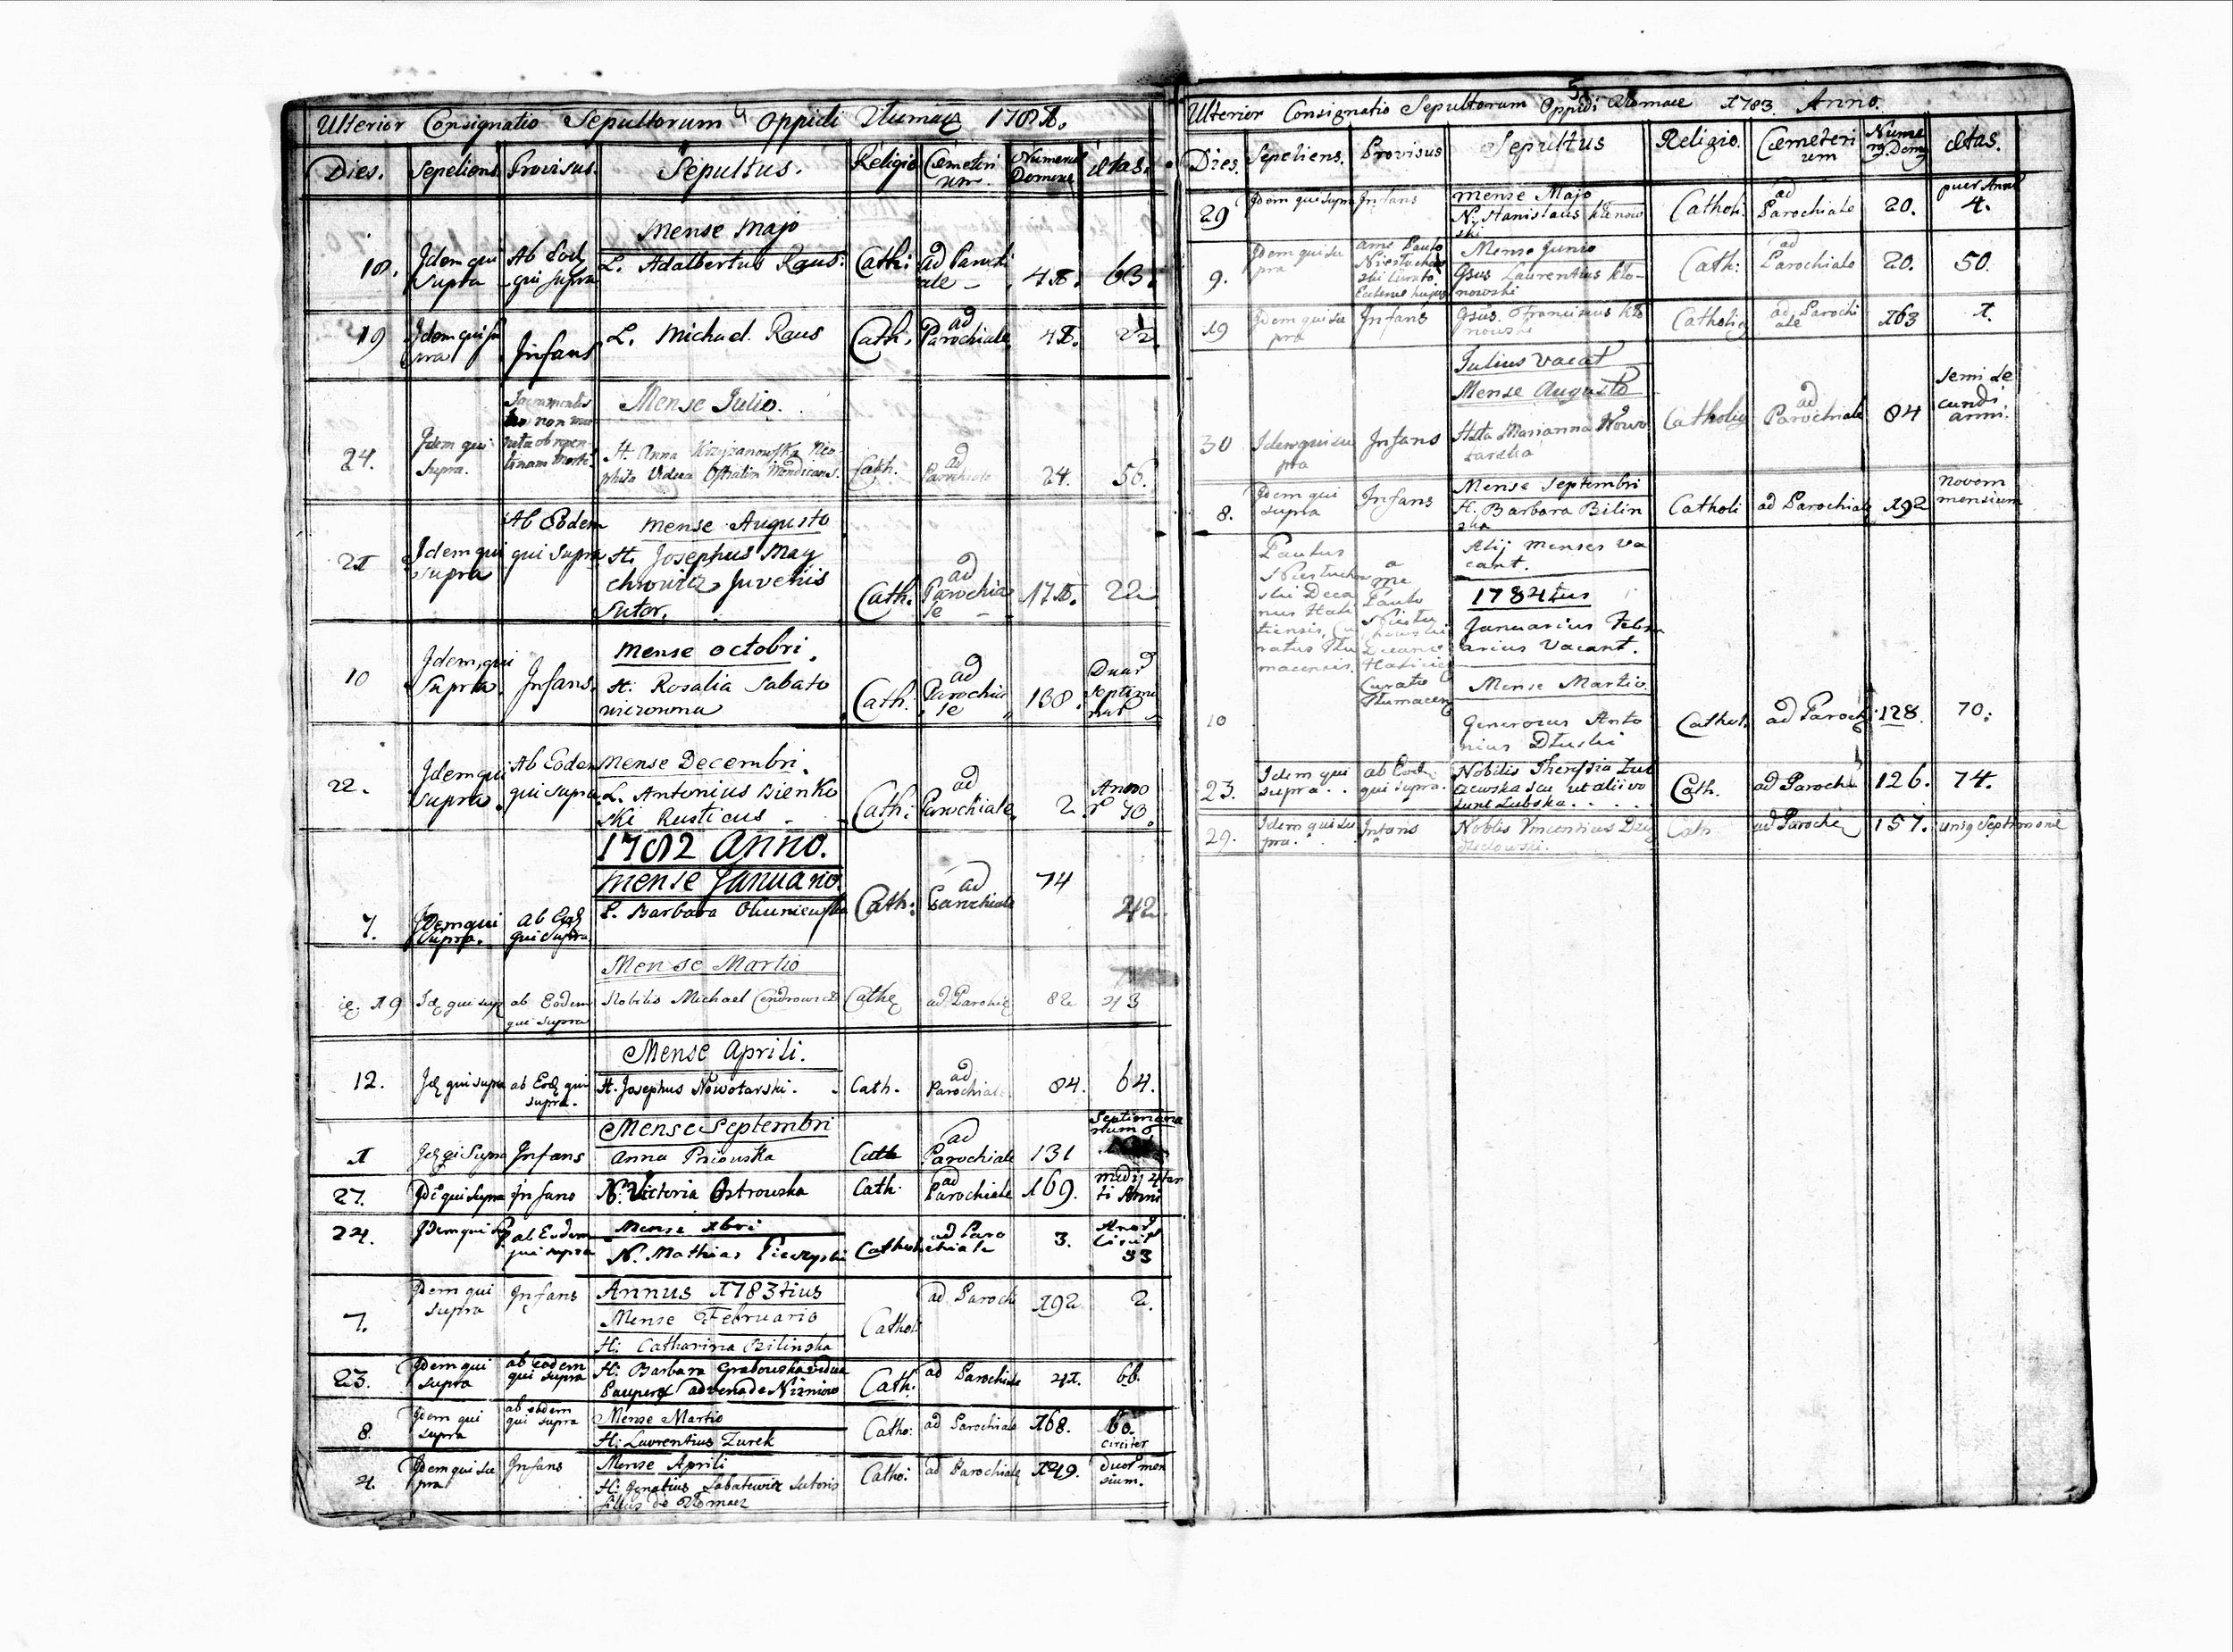 Ulterior Consignatio Sepultorum Oppidi Tłumacz 1781.
Dies. Sepeliens Provisus. Sepultus. Religio Cæmeteri um. Numerus Domus Ætas.
Mense Majo
18. Idem qui Supra Ab Eod qui supra L. Adalbertus Raus: Cath: ad Parochi ale 48. 63.
19 Idem qui su pra Infans L. Michael Raus Cath. ad Parochiale 41.
Mense Julio.
24. Idem qui supra. Sacramentis non mu nita ob repen tinam mortem H. Anna Krzyzanowska Neo phita Vidua Mendicans. Cath. ad Parochiale 24. 56.
Mense Augusto
21 Idem qui supra Ab Eodem qui supra H. Josephus May chrowicz Juvenis Sutor. Cath. ad Parochia le 171. 22
Mense Octobri.
10 Idem qui Supra Infans. H. Rosalia Sabato wiczowna Cath. ad Parochia le 138.
Mense Decembri.
22. Idem qui supra Ab Eodem qui supra L. Antonius Bienko ski Rusticus Cath: ad Parochiale 2
1782 Anno.
Mense Januario
7. Idem qui supra. ab Eod qui supra L. Barbara Okuniewska Cath: ad Parochiale 74 42
Mense Martio
19 qui supra ab Eodem qui supra Nobilis Michael Cendrowicz Cath ad Parohi 82 43
Mense Aprili.
12. Id qui supra ab Eod qui supra. H. Josephus Nowotarski. Cath. ad Parochiale 84. 64.
Mense Septembri
1 Id qi Supra Infans Anna Cath ad Parochiale 131
27. qui supra Infans N. Victoria Ostrowska Cath. ad Parochiale 169.
Mense Xbri
24. Idem qui ab Eodem qui supra N. Mathias Cathol ad Paro chiale 3. 33
Annus 1783tius
Mense Februario
7. Idem qui supra Infans H: Catharina Bilinska Cathol ad Paroch 192 2.
23. Idem qui supra ab eodem qui supra H: Barbara Grabowska vidua Pauper advena de Nizniow Cath. ad Parochiale 41. 66.
Mense Martio
8. Idem qui supra ab eodem qui supra H: Laurentius Zurek Catho: ad Parochiale 168. 60. circiter
Mense Aprili
4. Idem qui su pra Infans H: Ignatius Sabatowicz Sutoris filius de Tłomacz Catho: ad Parochiale 149. duor men sium.
5
Ulterior Consignatio Sepultorum Oppidi Tłomacz 1783 Anno.
Dies. Sepeliens. Provisus Sepultus Religio. Cæmeteri um Nume Dom Ætas.
Mense Majo
29 Idem qui supra Infans N. Stanislaus Kłonow ski Cathol: ad Parochiale 20. puer Anno 4.
Mense Junio
9. Idem qui su pra a me Paulo Curato Ecclesiæ hujus Gsus Laurentius Kło- nowski Cath: ad Parochiale 20. 50.
19 Idem qui su pra Infans Gsus. Franciscus Kło nowski Catholic ad Parochi ale 163 1.
Julius vacat
Mense Augusto
30 Idem qui su pra Infans Hsta Marianna Nowo tarska Catholic ad Parochiale 84 semi se cundi anni.
Mense Septembri
8. Idem qui supra Infans H. Barbara Bilin ska Catholi ad Parochiale 192 novem mensium
Alij menses va cant.
1784tus
Januarius Febru arius Vacant.
Mense Martio.
10 Paulus Deca nus Hali tiensis, Cu ratus Tłu macensis. a me Paulo Decano Halicien Curato Tłumacen Generosus Anto nius Dłuski Cathol. ad Paroch: 128. 70:
23. Idem qui supra. ab Eod qui supra. Nobilis Theressia seu ut alii vo lunt Lubska. Cath. ad Paroch 126. 74.
29. Idem qui su pra. Infans Nobilis Vincentius Cath ad Paroch 157.